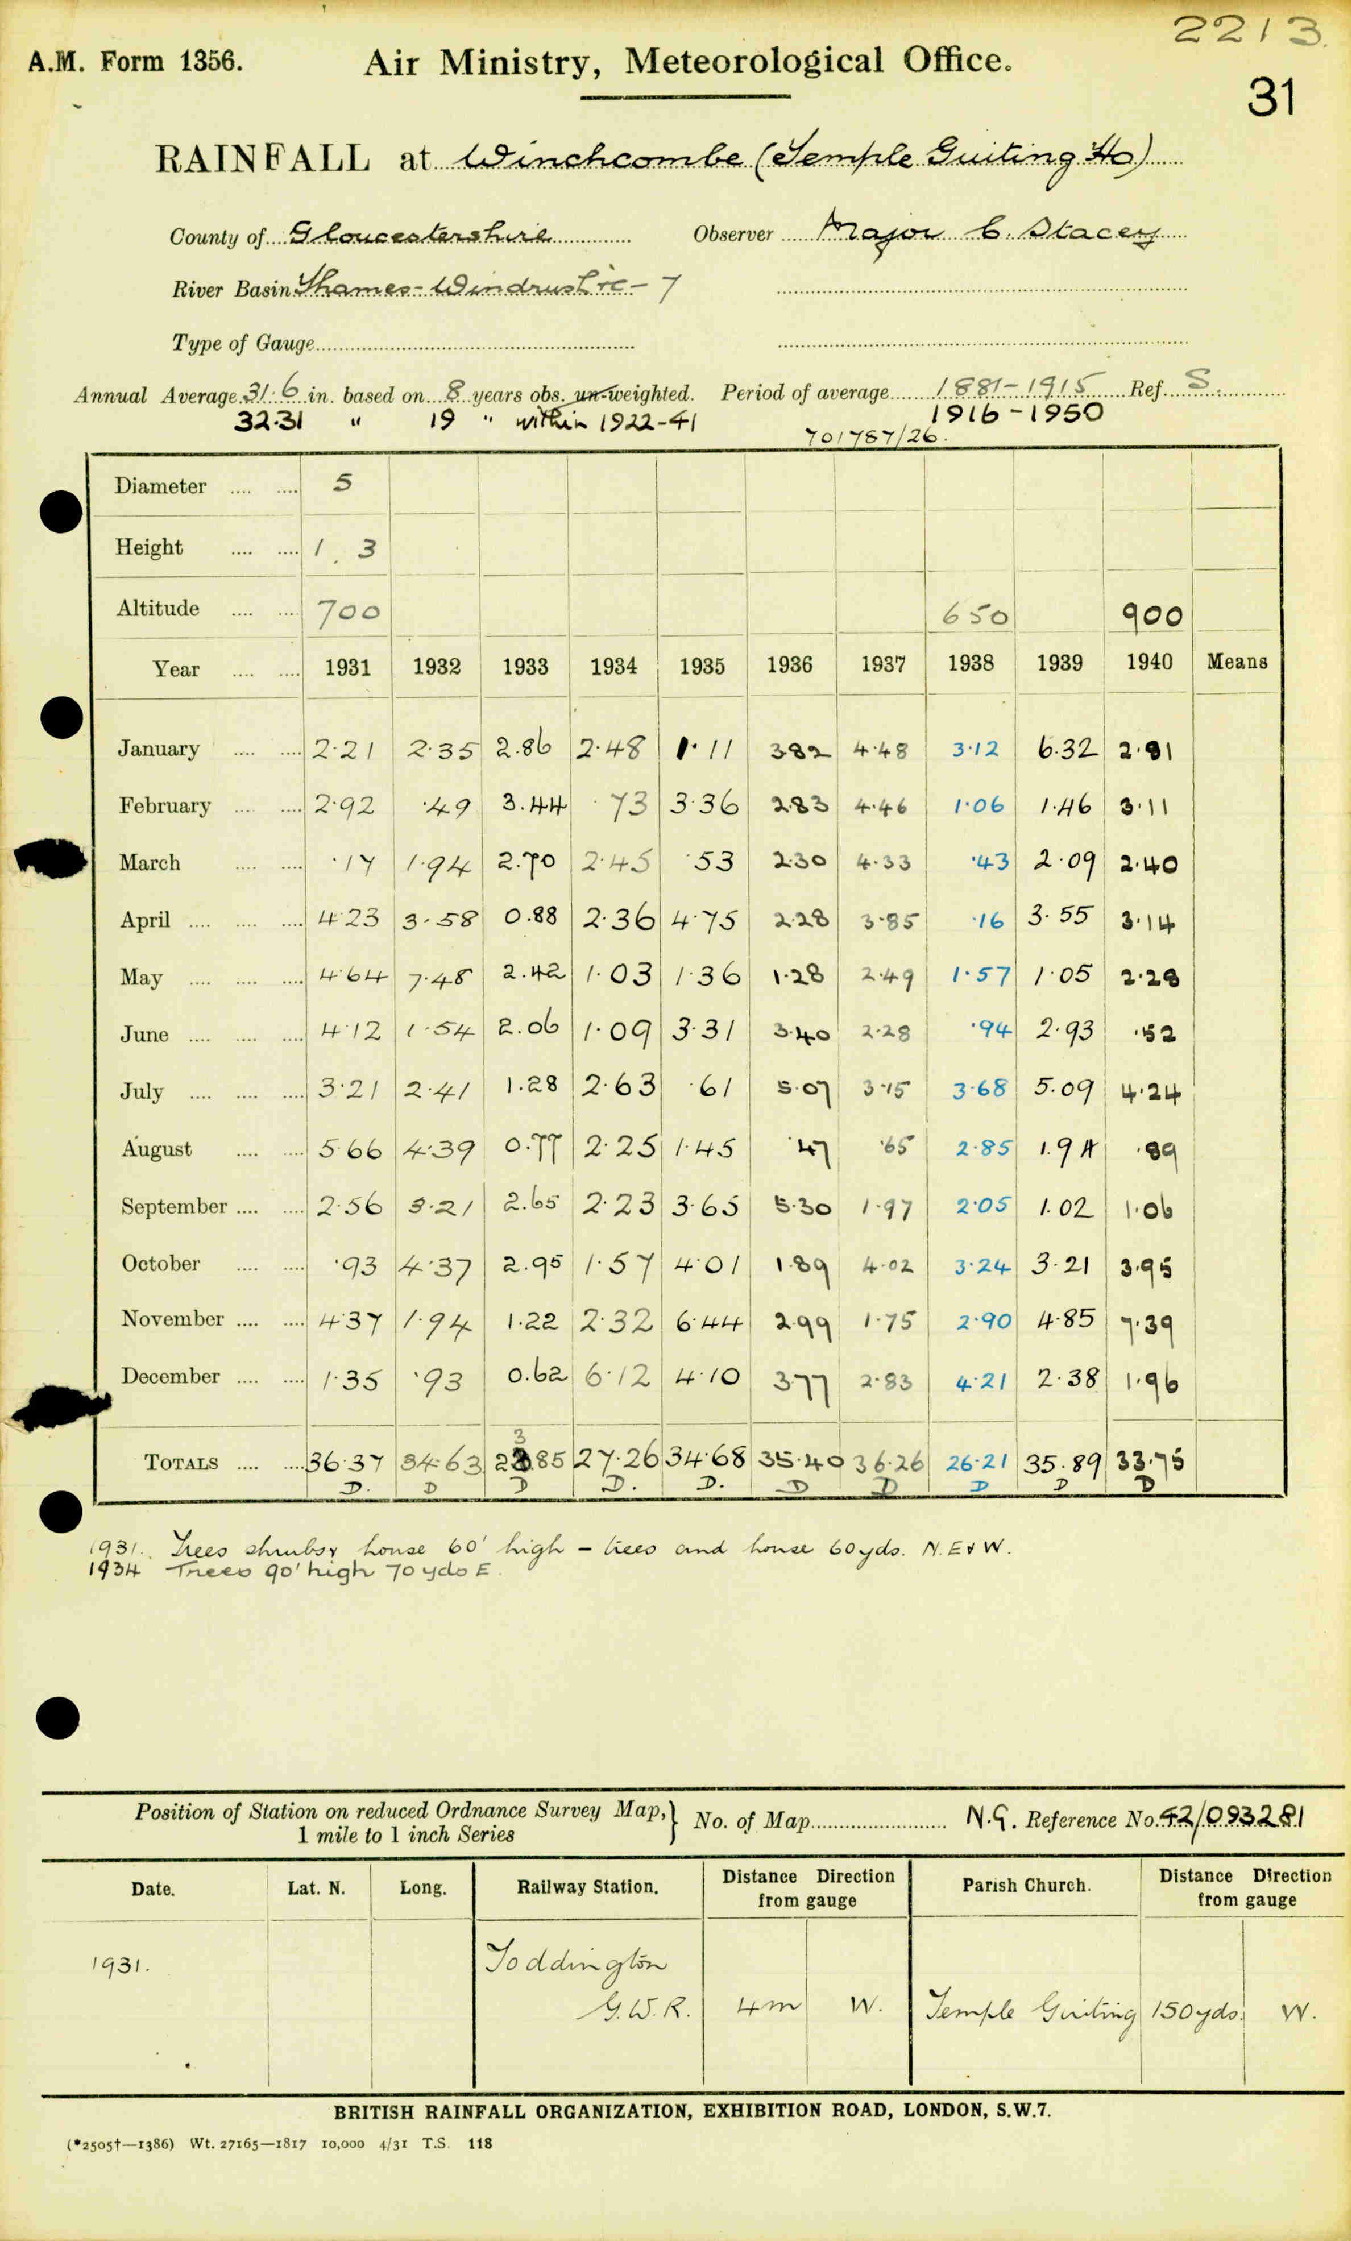 2213
A.M. Form 1356.
Air Ministry, Meteorological Office.
31
RAINFALL at Winchcombe (Temple Guiting Ho)
County of Gloucestershire Observer Major C. Stacey
River Basin Thames-Windrush &c - 7
Type of Gauge
Annual Average 31.6 in. based on 8 years obs. un-weighted. Period of average 1881-1915 Ref. S.
32.31 " 19 " within 1922-41 1916-1950
701787/26.
Diameter 5
Height 1. 3
Altitude 700 650 900
Year 1931 1932 1933 1934 1935 1936 1937 1938 1939 1940 Means
January 2.21 2.35 2.86 2.48 1.11 3.82 4.48 3.12 6.32 2.81
February 2.92 .49 3.44 .73 3.36 2.83 4.46 1.06 1.46 3.11
March .17 1.94 2.70 2.45 .53 2.30 4.33 .43 2.09 2.40
April 4.23 3.58 0.88 2.36 4.75 2.28 3.85 .16 3.55 3.14
May 4.64 7.48 2.42 1.03 1.36 1.28 2.49 1.57 1.05 2.28
June 4.12 1.54 2.06 1.09 3.31 3.40 2.28 .94 2.93 .52
July 3.21 2.41 1.28 2.63 .61 5.07 3.15 3.68 5.09 4.24
August 5.66 4.39 0.77 2.25 1.45 .47 .65 2.85 1.94 .89
September 2.56 3.21 2.65 2.23 3.65 5.30 1.97 2.05 1.02 1.06
October .93 4.37 2.95 1.57 4.01 1.89 4.02 3.24 3.21 3.95
November 4.37 1.94 1.22 2.32 6.44 2.99 1.75 2.90 4.85 7.39
December 1.35 .93 0.62 6.12 4.10 3.77 2.83 4.21 2.38 1.96
3
TOTALS 36.37 34.63 23.85 27.26 34.68 35.40 36.26 26.21 35.89 33.75
D. D D D. D. D D D D D
1931. Trees shrubs & house 60' high - trees and house 60 yds. N. E & W.
1934 Trees 90' high 70 yds E.
Position of Station on reduced Ordnance Survey Map, 1 mile to 1 inch Series } No. of Map N.G. Reference No. 42/093281
Date. Lat. N. Long. Railway Station. Distance Direction from gauge Parish Church. Distance Direction from gauge
1931. Toddington
G.W.R. 4m W. Temple Guiting 150 yds. W.
BRITISH RAINFALL ORGANIZATION, EXHIBITION ROAD, LONDON, S.W.7.
(*2505†—1386) Wt. 27165—1817 10,000 4/31 T.S. 118